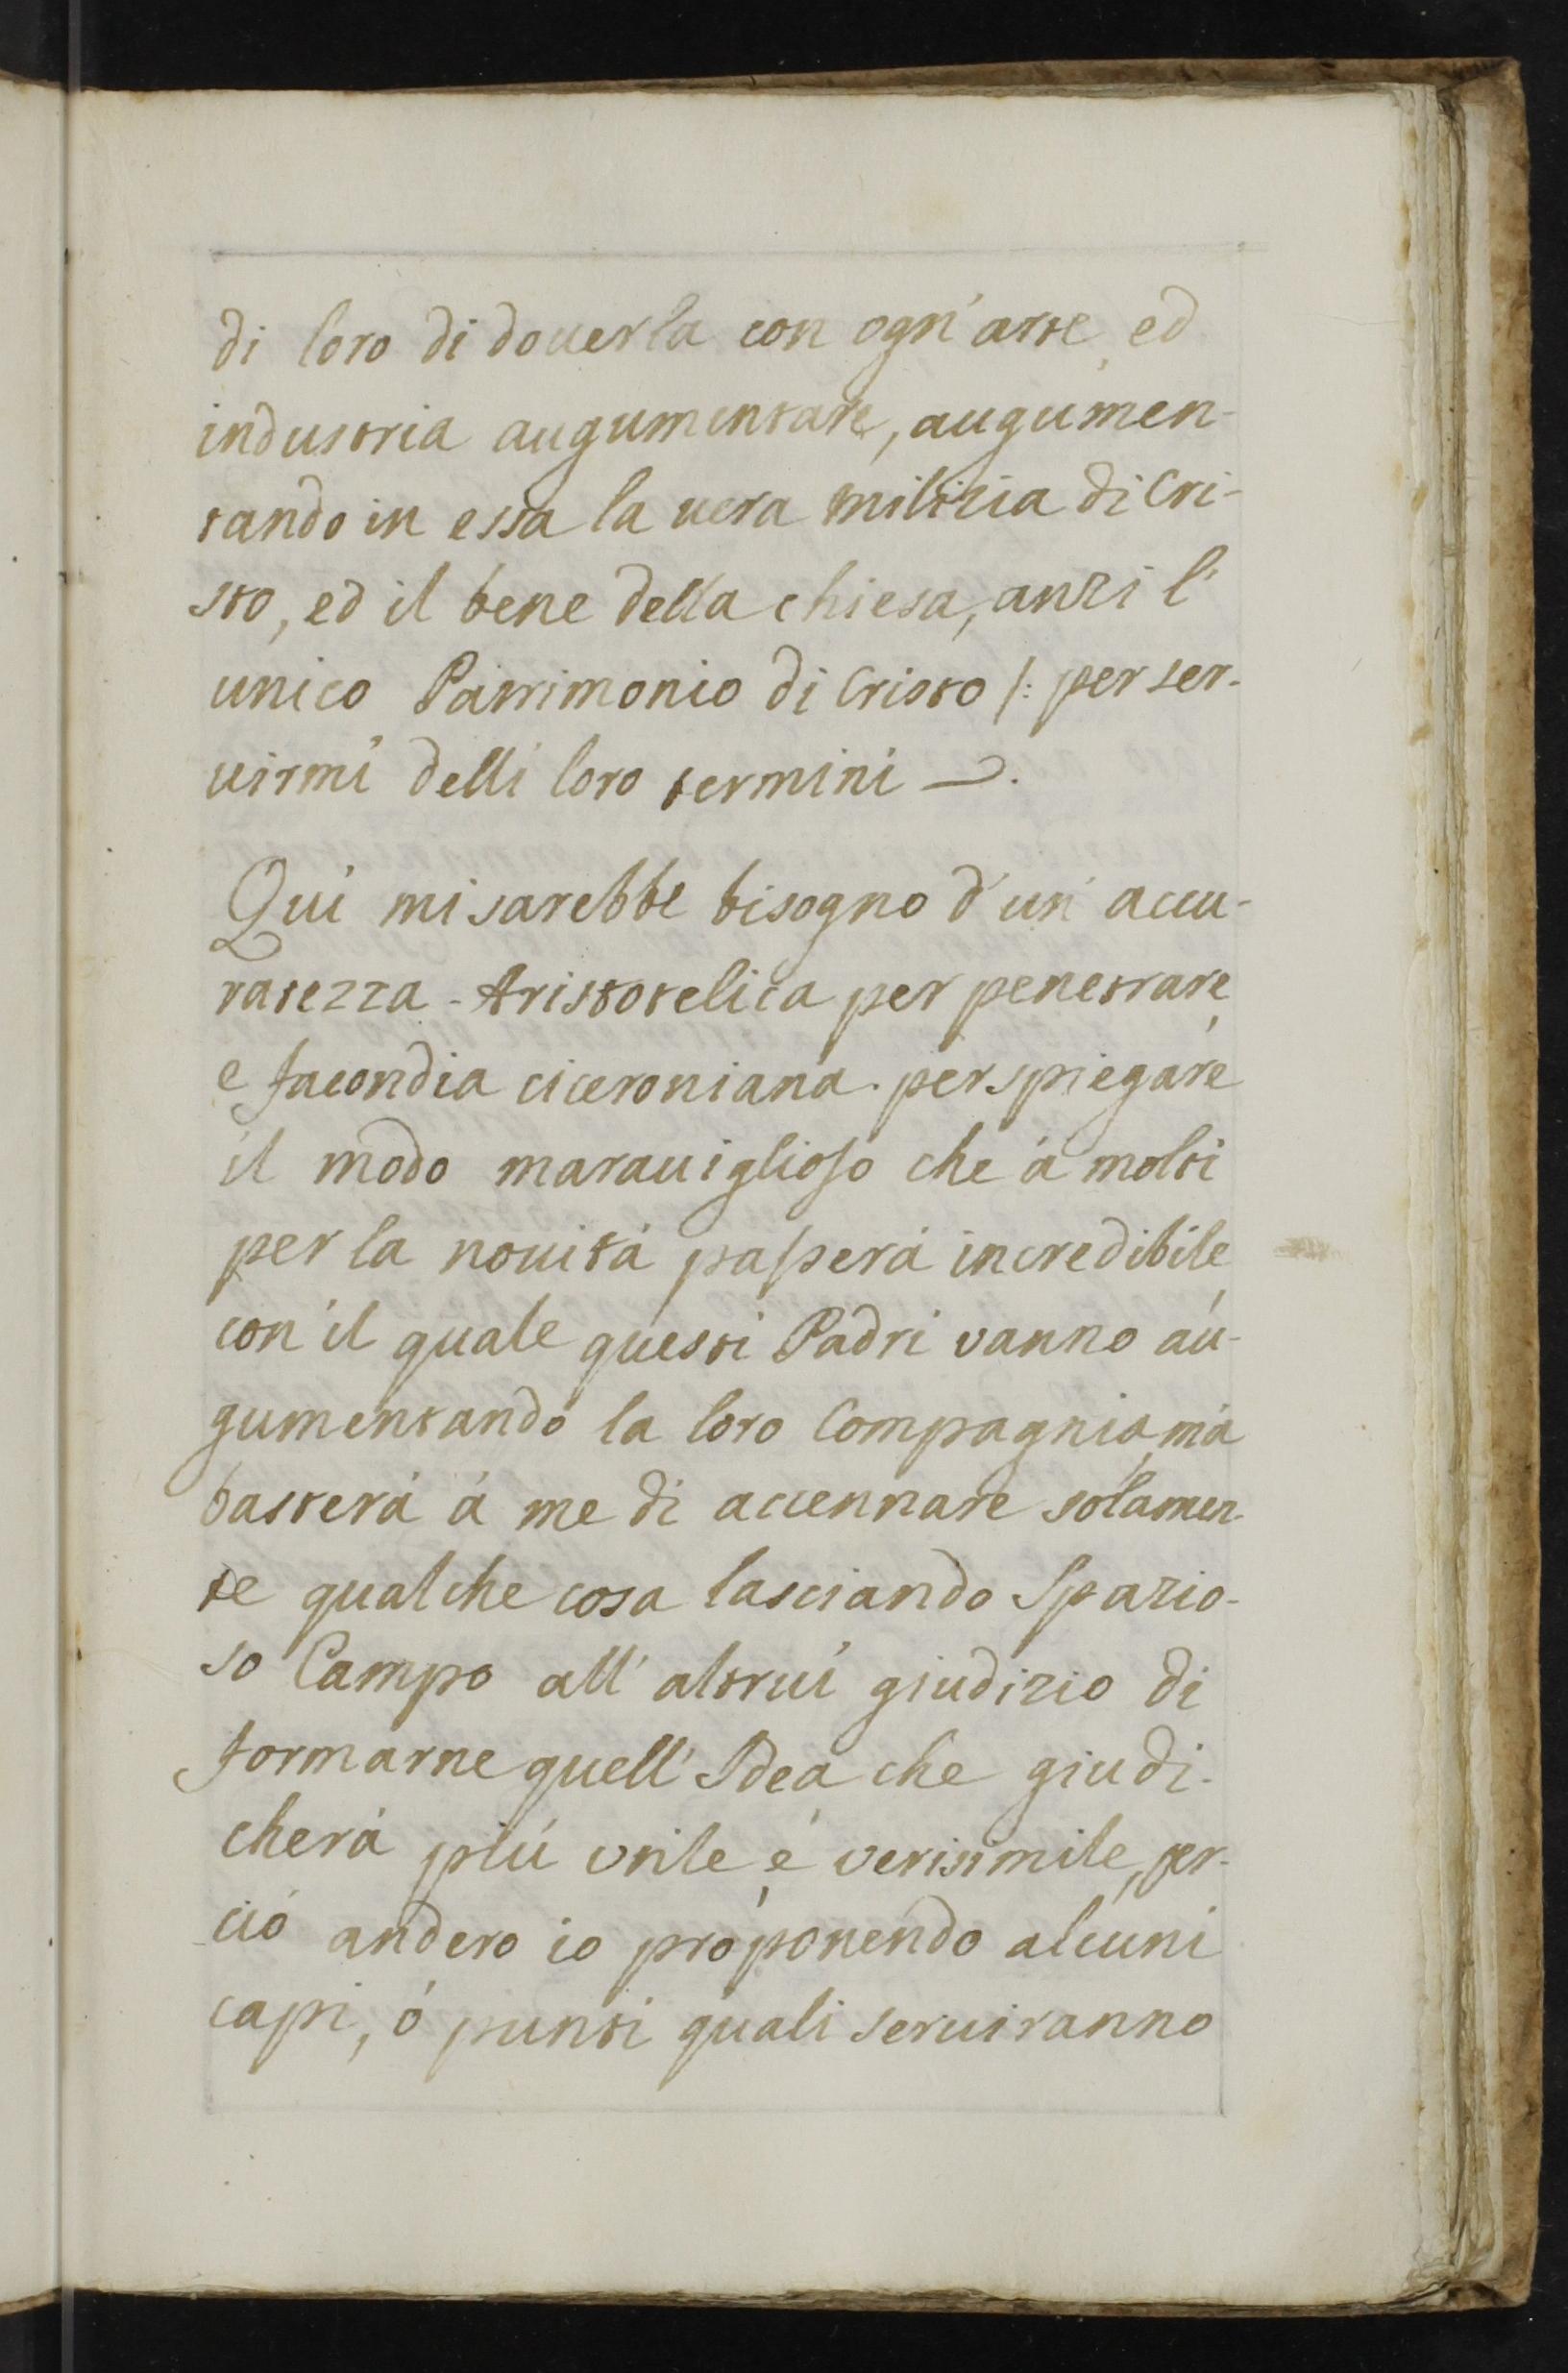 di loro di douerla con ogn'arte, ed
industria augumentare, augumen-
tando in essa la uera militia di Cri-
sto, ed il bene della chiesa, anzi l'
unico Patrimonio di Cristo /: per ser-
uirmi delli loro termini —.
Qui mi sarebbe bisogno d'un' accu-
ratezza Aristotelica per penetrare,
e facondia ciceroniana per spiegare
il modo marauiglioso che à molti
per la nouità passerà incredibile,
con il quale questi Padri vanno au-
gumentando la loro Compagnia, mà
basterà à me di accennare solamen-
te qualche cosa lasciando Spazio-
so Campo all' altrui giudizio di
formarne quell' Idea che giudi-
cherà più vtile, è verisimile, per-
ciò andero io proponendo alcuni
capi, ò punti quali seruiranno